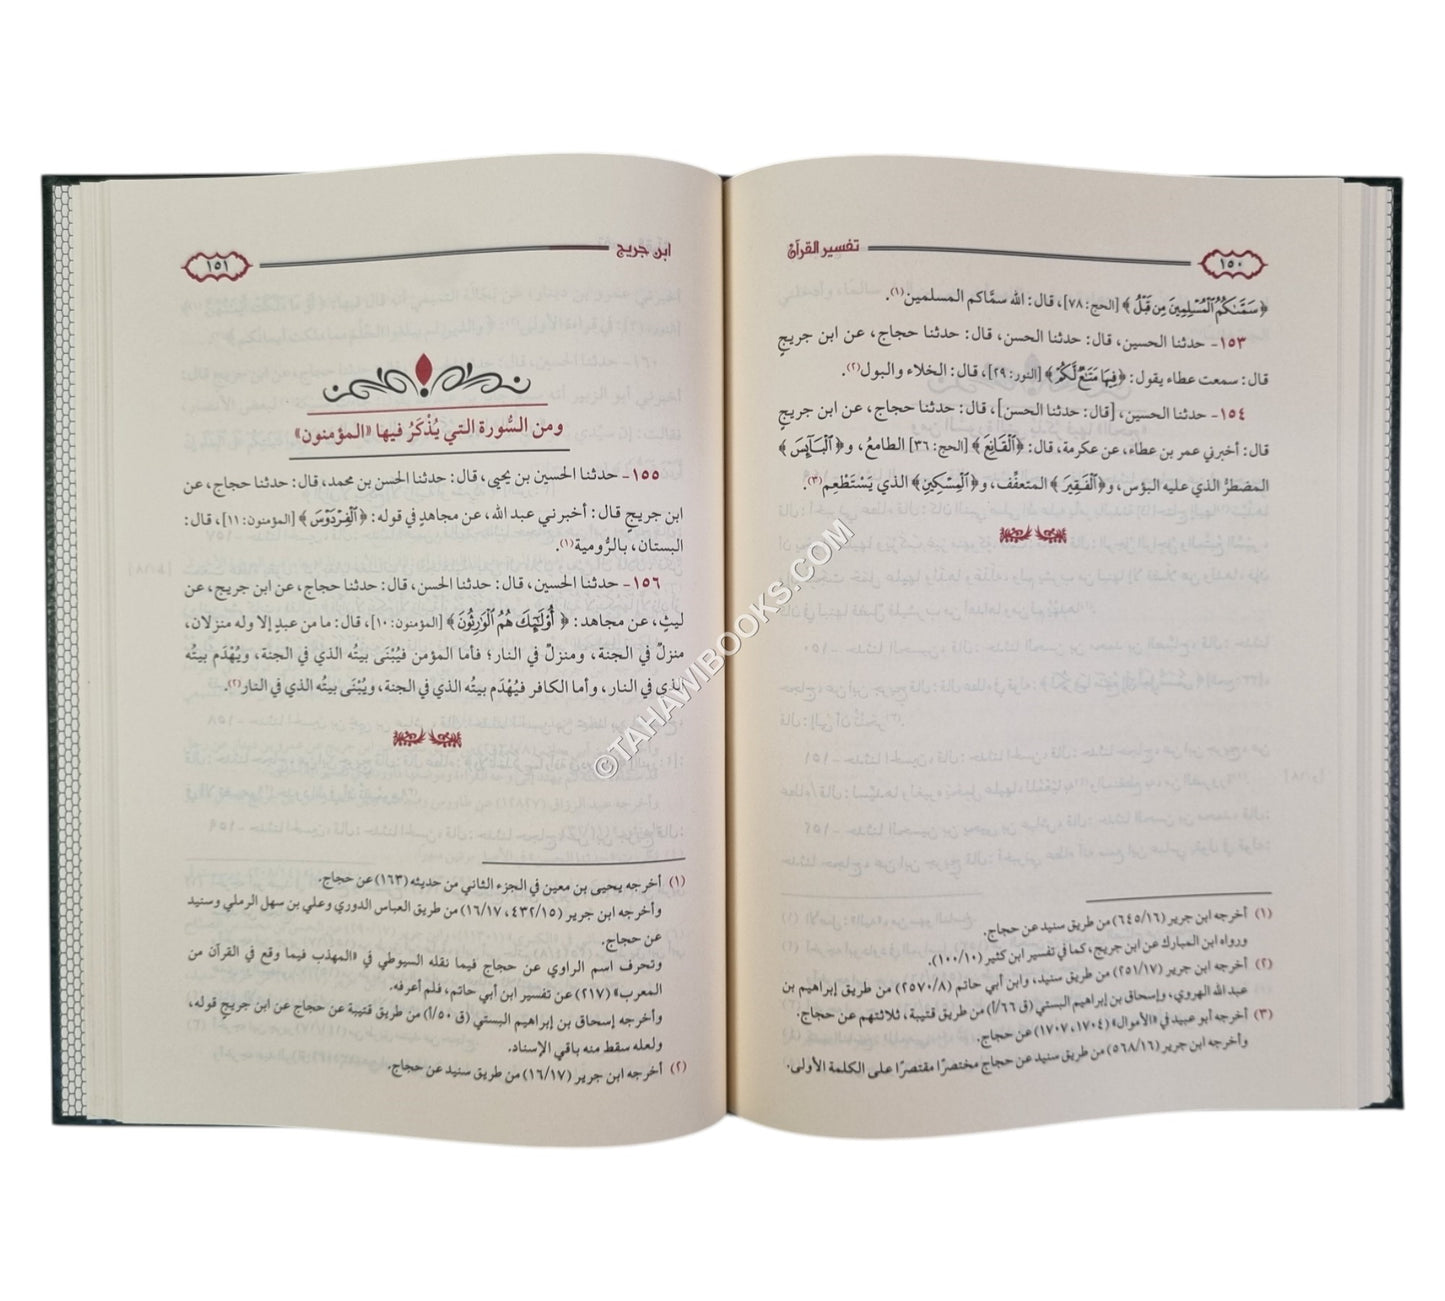 ١٥٠
تفسير القرآن
﴿سَمَّىٰكُمُ ٱلْمُسْلِمِينَ مِن قَبْلُ﴾ [الحج: ٧٨]، قال: الله سمَّاكم المسلمين(١).
١٥٣- حدثنا الحسين، قال: حدثنا الحسن، قال: حدثنا حجاج، عن ابن جريجٍ
قال: سمعت عطاء يقول: ﴿فِيهَا مَتَٰعٌ لَّكُمْ﴾ [النور: ٢٩]، قال: الخلاء والبول(٢).
١٥٤- حدثنا الحسين، [قال: حدثنا الحسن]، قال: حدثنا حجاج، عن ابن جريجٍ
قال: أخبرني عمر بن عطاء، عن عكرمة، قال: ﴿ٱلْقَانِعَ﴾ [الحج: ٣٦] الطامعُ، و﴿ٱلْبَآئِسَ﴾
المضطرُّ الذي عليه البؤس، و﴿ٱلْفَقِيرَ﴾ المتعفِّف، و﴿ٱلْمِسْكِينَ﴾ الذي يَسْتَطْعِم(٣).
(١) أخرجه ابن جرير (٦٤٥/١٦) من طريق سنيد عن حجاج.
ورواه ابن المبارك عن ابن جريج، كما في تفسير ابن كثير (١٠٠/١٠).
(٢) أخرجه ابن جرير (٢٥١/١٧) من طريق سنيد، وابن أبي حاتم (٢٥٧٠/٨) من طريق إبراهيم بن
عبد الله الهروي، وإسحاق بن إبراهيم البستي (ق ٦٦/أ) من طريق قتيبة، ثلاثتهم عن حجاج.
(٣) أخرجه أبو عبيد في «الأموال» (١٧٠٤، ١٧٠٧) عن حجاج.
وأخرجه ابن جرير (٥٦٨/١٦) من طريق سنيد عن حجاج مختصرًا مقتصرًا على الكلمة الأولى.
ابن جريج
١٥١
ومن السُّورة التي يُذْكَرُ فيها «المؤمنون»
١٥٥- حدثنا الحسين بن يحيى، قال: حدثنا الحسن بن محمد، قال: حدثنا حجاج، عن
ابن جريجٍ قال: أخبرني عبد الله، عن مجاهدٍ في قوله: ﴿ٱلْفِرْدَوْسَ﴾ [المؤمنون: ١١]، قال:
البستان، بالرُّومية(١).
١٥٦- حدثنا الحسين، قال: حدثنا الحسن، قال: حدثنا حجاج، عن ابن جريج، عن
ليثٍ، عن مجاهد: ﴿أُو۟لَٰٓئِكَ هُمُ ٱلْوَٰرِثُونَ﴾ [المؤمنون: ١٠]، قال: ما من عبدٍ إلا وله منزلان،
منزلٌ في الجنة، ومنزلٌ في النار؛ فأما المؤمن فيُبْنَى بيتُه الذي في الجنة، ويُهْدَم بيتُه
الذي في النار، وأما الكافر فيُهْدَم بيتُه الذي في الجنة، ويُبْنَى بيتُه الذي في النار(٢).
(١) أخرجه يحيى بن معين في الجزء الثاني من حديثه (١٦٣) عن حجاج.
وأخرجه ابن جرير (٤٣٢/١٥، ١٦/١٧) من طريق العباس الدوري وعلي بن سهل الرملي وسنيد
عن حجاج.
وتحرف اسم الراوي عن حجاج فيما نقله السيوطي في «المهذب فيما وقع في القرآن من
المعرب» (٢١٧) عن تفسير ابن أبي حاتم، فلم أعرفه.
وأخرجه إسحاق بن إبراهيم البستي (ق ٥٠/أ) من طريق قتيبة عن حجاج عن ابن جريجٍ قوله،
ولعله سقط منه باقي الإسناد.
(٢) أخرجه ابن جرير (١٦/١٧) من طريق سنيد عن حجاج.
©TAHAWIBOOKS.COM